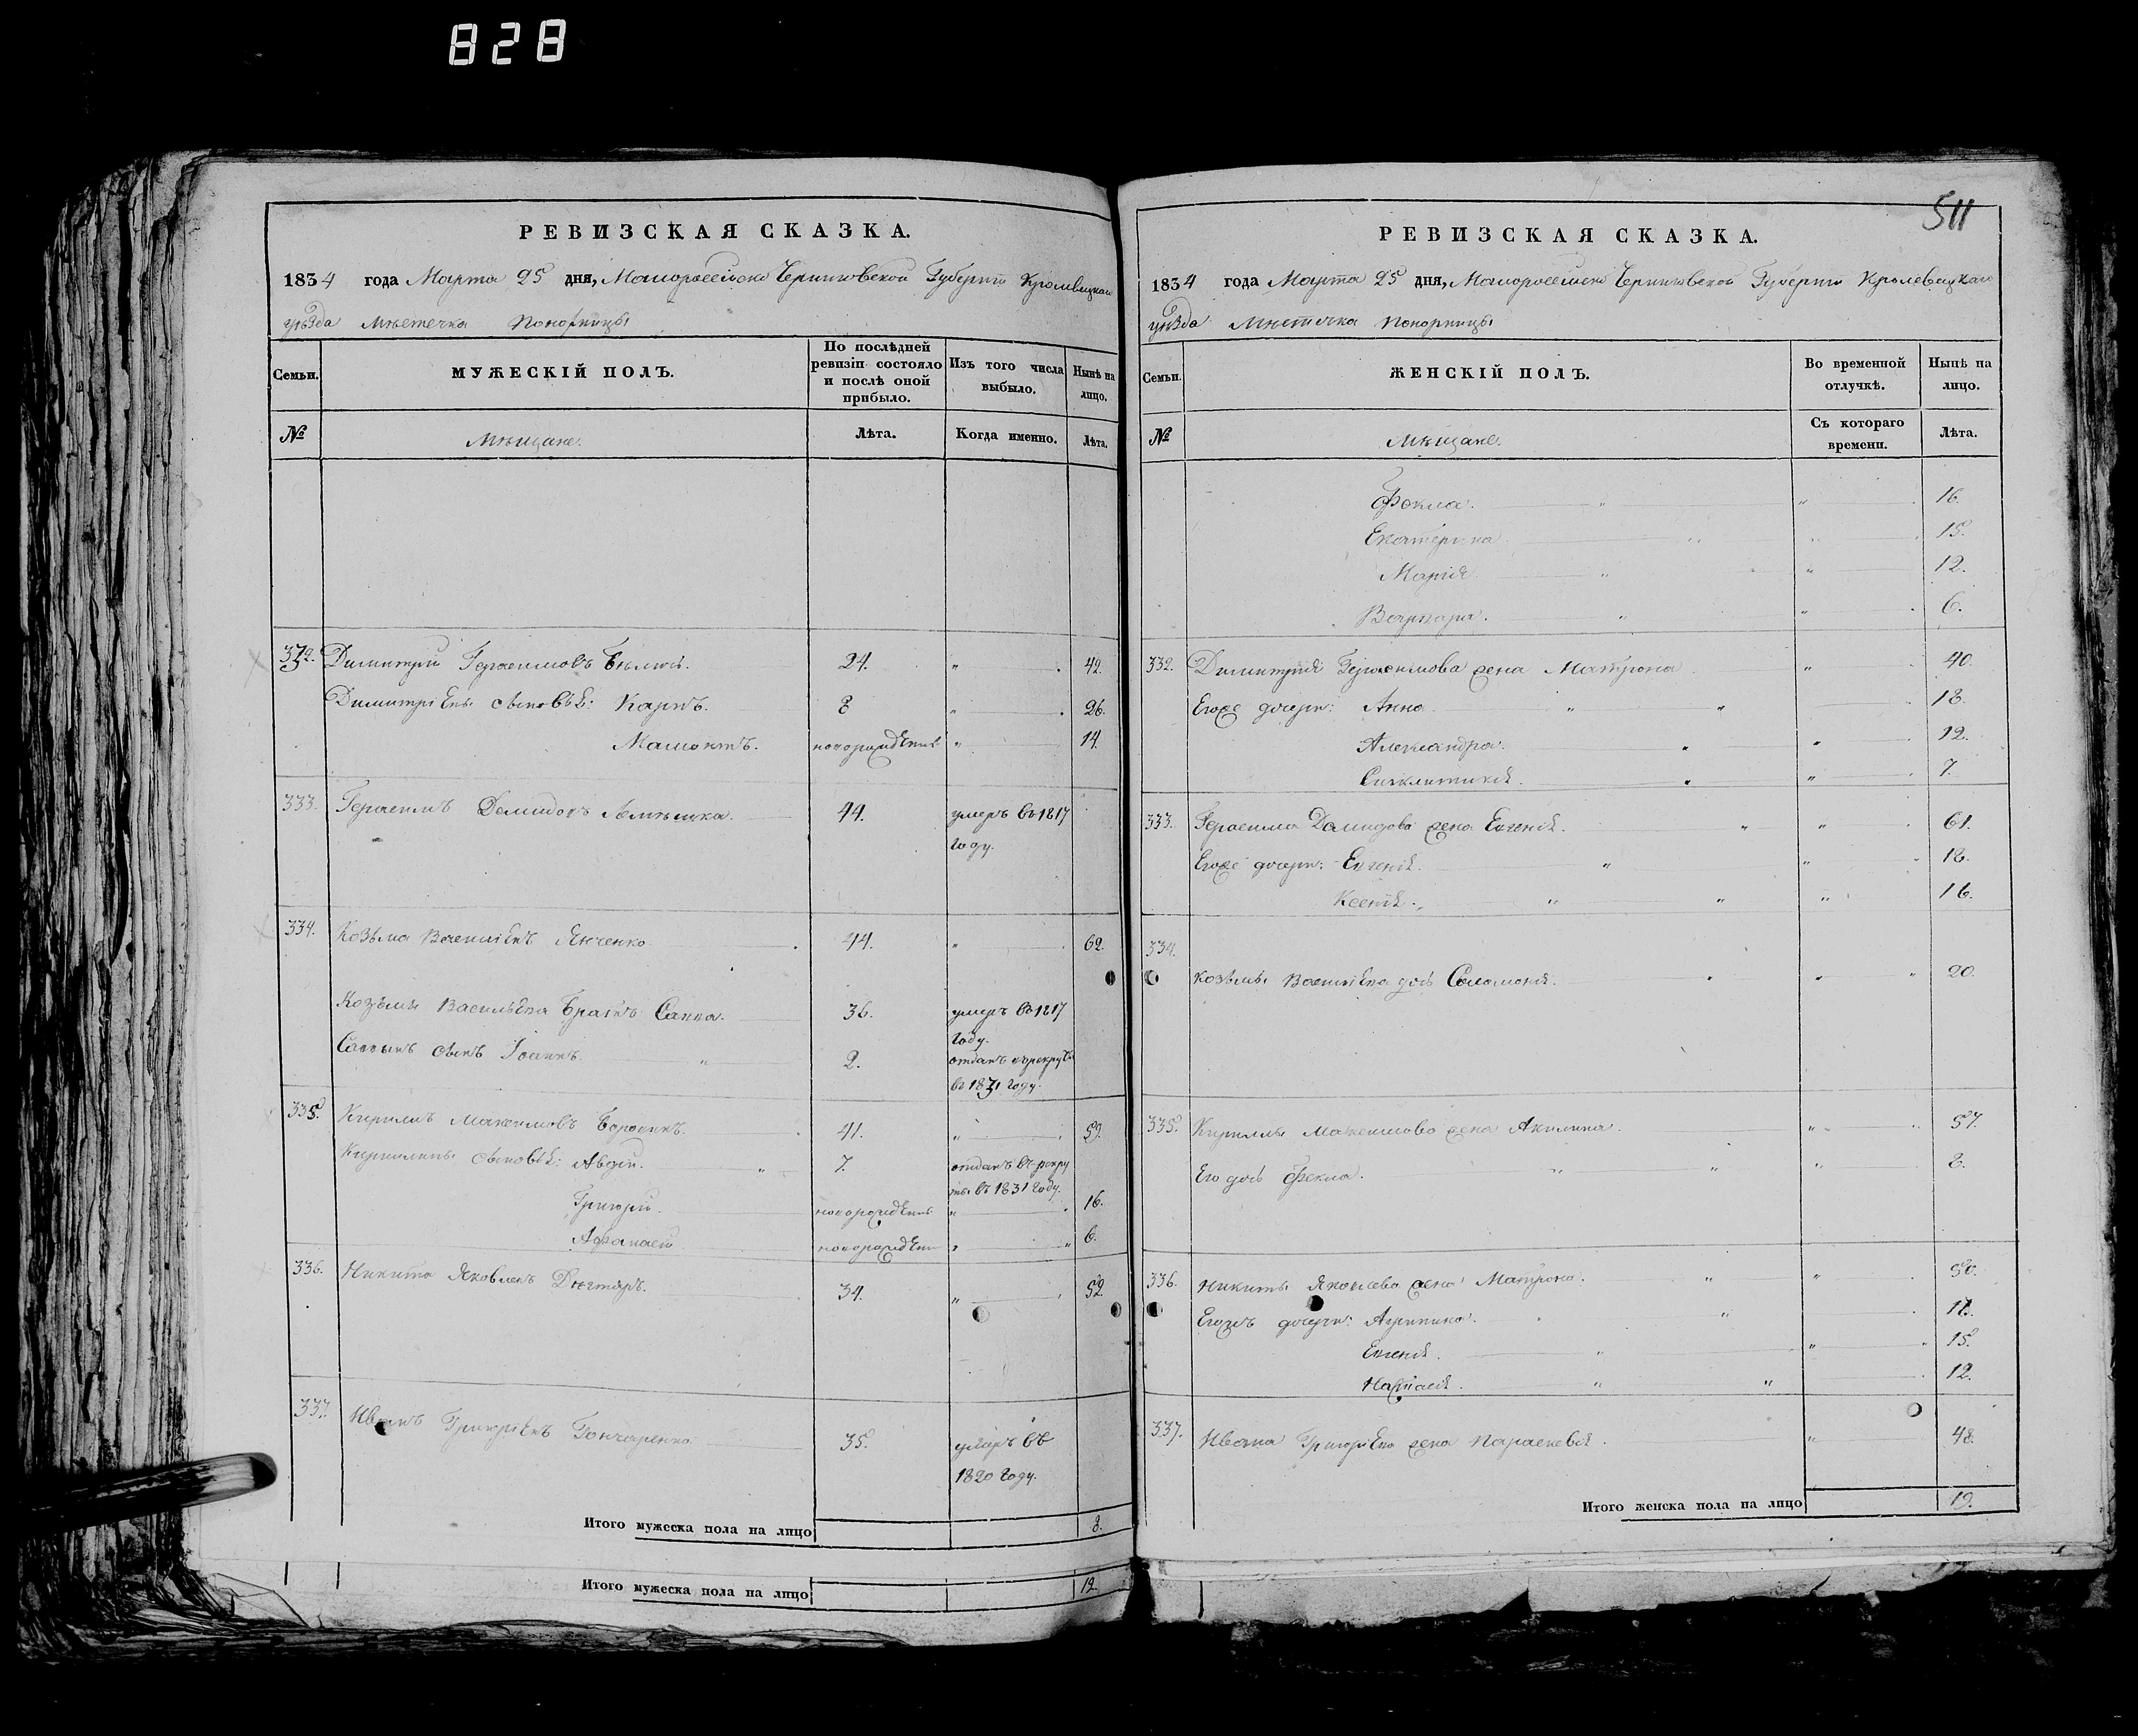 828
РЕВИЗСКАЯ СКАЗКА.
1834 года Марта 25 дня, Малороссійско Черниговской Губерніи Кролевецкаго
уѣзда мѣстечка Понорницы
Семьи.
МУЖЕСКІЙ ПОЛЪ.
По послѣдней ревизіи состояло и послѣ оной прибыло.
Изъ того числа выбыло.
Нынѣ на лицо.
№
Мѣщане.
Лѣта.
Когда именно.
Лѣта.
332. Димитрій Герасимовъ 24. " 42.
Димитріевы сыновья: Карпъ. 8 " 26.
новорожденъ " 14.
333. Герасимъ Демидовъ 44. умеръ въ 1817
году.
334. Козьма Васильевъ Янченко 44. " 62.
Козьмы Васильева братъ Савва. 36. умеръ въ 1817
году.
Саввинъ сынъ Іоаннъ. " 2. отданъ въ рекруты
въ 1831 году.
335. Кириллъ Максимовъ 41. " 59.
Кирилловы сыновья: Авдій. " 7. отданъ въ рекру
ты въ 1831 году.
Григорій. новорожденъ " 16.
Афанасій новорожденъ " 6.
336. Никита Яковлевъ Дѣгтяръ. 34. " 52.
337. Иванъ Григорьевъ Гончаренко 35. умеръ въ
1820 году.
Итого мужеска пола на лицо 8.
Итого мужеска пола на лицо 12.
511
РЕВИЗСКАЯ СКАЗКА.
1834 года Марта 25 дня, Малороссійско Черниговской Губерніи Кролевецкаго
уѣзда мѣстечка Понорницы
Семьи.
ЖЕНСКІЙ ПОЛЪ.
Во временной отлучкѣ.
Нынѣ на лицо.
№
Мѣщане.
Съ котораго времени.
Лѣта.
Фекла. " " 16.
Екатерина " " 15.
Марія. " " 12.
Варвара. " " 6.
332. Димитрія Герасимова жена Матрона " 40.
Егоже дочери: Анна. " " 18.
Александра. " " 12.
Синклитикія. " " 7.
333. Герасима Демидова жена Евгенія. " " 61.
Егоже дочери: Евгенія. " " 18.
Ксенія. " " " 16.
334.
Козьмы Васильева дочь Соломонія. " " 20.
335. Кириллы Максимова жена Акилина. " 57.
Его дочь Фекла. " " " 8.
336. Никиты Яковлева жена Матрона. " " 50.
Егожъ дочери: " 18.
Евгенія. " " 15.
" " 12.
337. Ивана Григорьева жена Параскевія. " 48.
Итого женска пола на лицо 19.